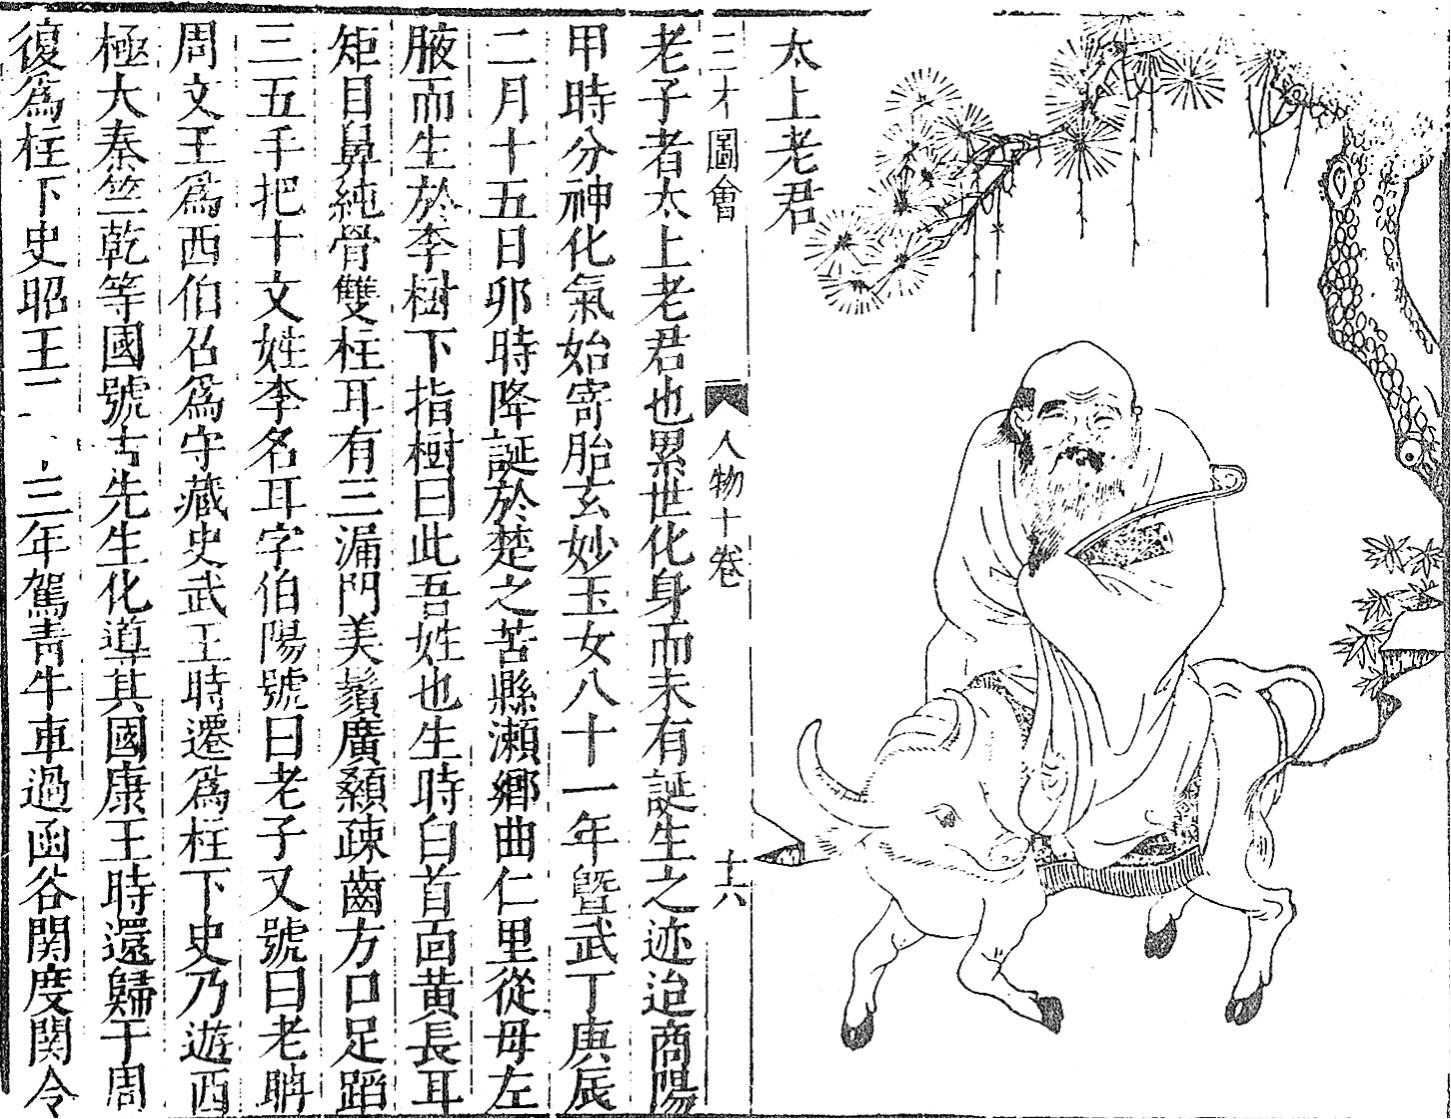 太上老君
三才圖會 人物十卷 十六
老子者太上老君也累世化身而未有誕生之迹迨商陽
甲時分神化氣始寄胎玄妙玉女八十一年曁武丁庚辰
二月十五日卯時降誕於楚之苦縣瀨鄉曲仁里從母左
腋而生於李樹下指樹曰此吾姓也生時白首面黃長耳
矩目鼻純骨雙柱耳有三漏門美鬚廣顙疎齒方口足蹈
三五手把十文姓李名耳字伯陽號曰老子又號曰老聃
周文王爲西伯召爲守藏史武王時遷爲柱下史乃遊西
極大秦竺乾等國號古先生化導其國康王時還歸于周
復爲柱下史昭王二三年駕青牛車過函谷関度関令